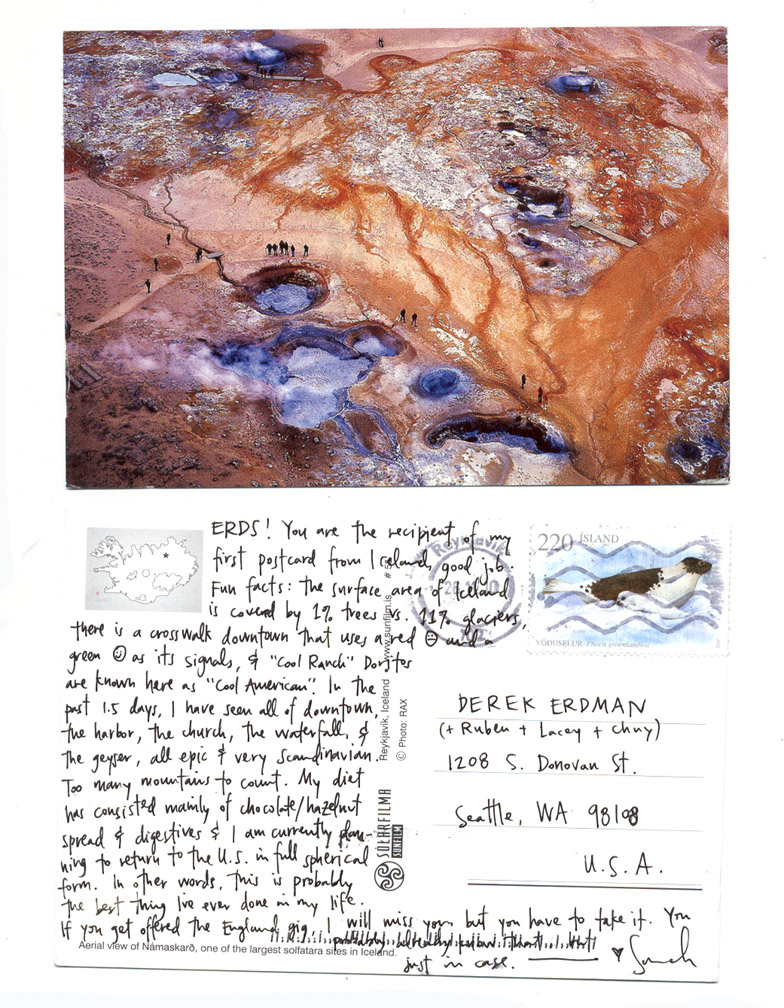 ERDS! You are the recipient of my
first postcard from Iceland, good job.
Fun facts: the surface area of Iceland
is covered by 1% trees vs. 11% glaciers,
there is a crosswalk downtown that uses a red ☹ and a
green ☺ as its signals, & "Cool Ranch" Doritos
are known here as "Cool American". In the
past 1.5 days, I have seen all of downtown,
the harbor, the church, the waterfall, &
the geyser, all epic & very Scandinavian.
Too many mountains to count. My diet
has consisted mainly of chocolate/hazelnut
spread & digestives & I am currently plan-
ning to return to the U.S. in full spherical
form. In other words, this is probably
the best thing I've ever done in my life.
If you get offered the England gig, I will miss you, but you have to take it. You
just in case.
♥ Sarah
Aerial view of Námaskarð, one of the largest solfatara sites in Iceland.
SÓLARFILMA
SUNFILM
Reykjavík, Iceland www.sunfilm.is
© Photo: RAX
Reykjavík
220 ÍSLAND
VÖÐUSELUR Phoca groenlandica
DEREK ERDMAN
(+ Ruben + Lacey + chuy)
1208 S. Donovan St.
Seattle, WA 98108
U.S.A.